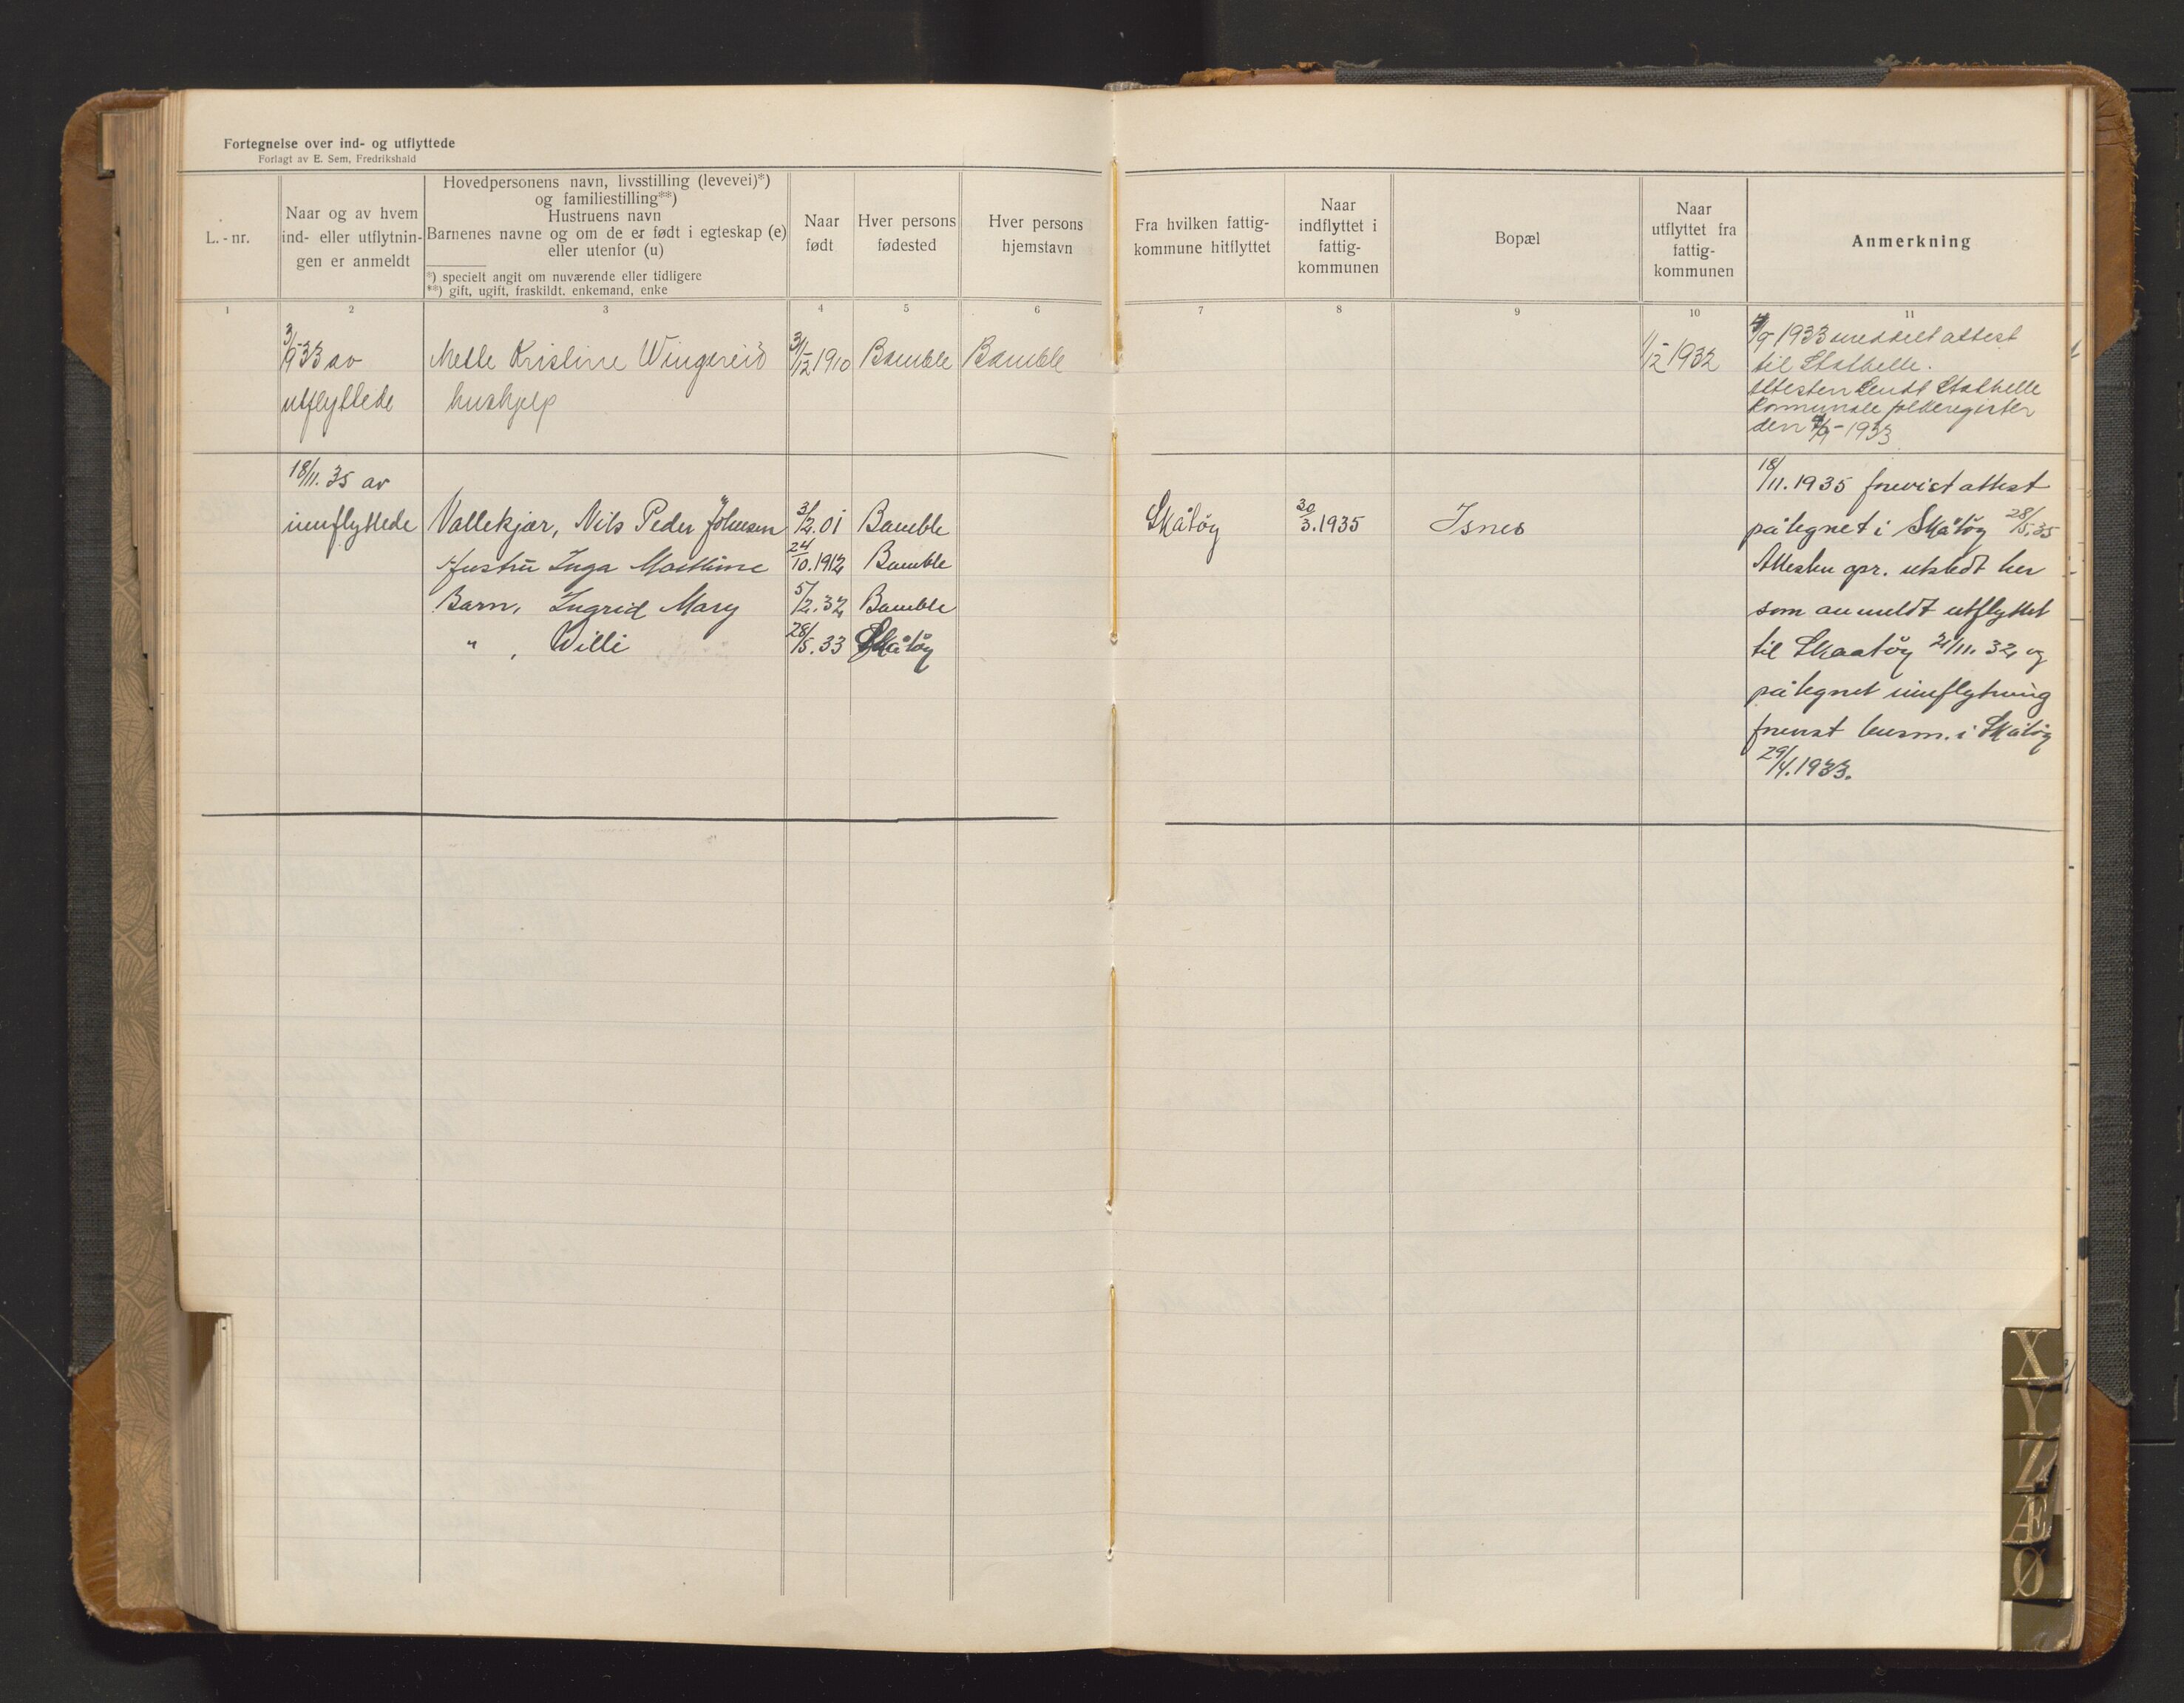 Fortegnelse over ind- og utflyttede
Forlagt av E. Sem, Fredrikshald
L.-nr.
Naar og av hvem
ind- eller utflytnin-
gen er anmeldt
Hovedpersonens navn, livsstilling (levevei)*)
og familiestilling**)
Hustruens navn
Barnenes navne og om de er født i egteskap (e)
eller utenfor (u)
*) specielt angit om nuværende eller tidligere
**) gift, ugift, fraskildt. enkemand, enke
Naar
født
Hver persons
fødested
Hver persons
hjemstavn
Fra hvilken fattig-
kommune hitflyttet
Naar
indflyttet i
fattig-
kommunen
Bopæl
Naar
utflyttet fra
fattig-
kommunen
Anmerkning
1 2 3 4 5 6 7 8 9 10 11
3/9-33 av
utflyttede
Mette Kristine Wingereid
hushjelp
3/12-1910
Bamble
Bamble
1/12-1932
4/9-1933 meddelt attest
til Stathelle.
Attesten sendt Stathelle
kommunale folkeregister
den 4/9-1933
18/11.35 av
innflyttede
Vallekjær, Nils Peder Johnsen
3/2.01
Bamble
Skåtøy
30/3.1935
Isnes
Hustru Inga Mathine
24/10.1912
Bamble
Barn, Ingrid Mary
5/2.32
Bamble
" , Willi
28/5.33
Skåtøy
18/11.1935 frevist attest
påtegnet i Skåtøy 28/5.35
Attesten opr. utstedt her
som anmeldt utflyttet
til Skaatøy 2/11.32, og
påtegnet innflytning
frevist lensm. i Skåtøy
29/4.1933.
X
Y
Z
Æ
Ø